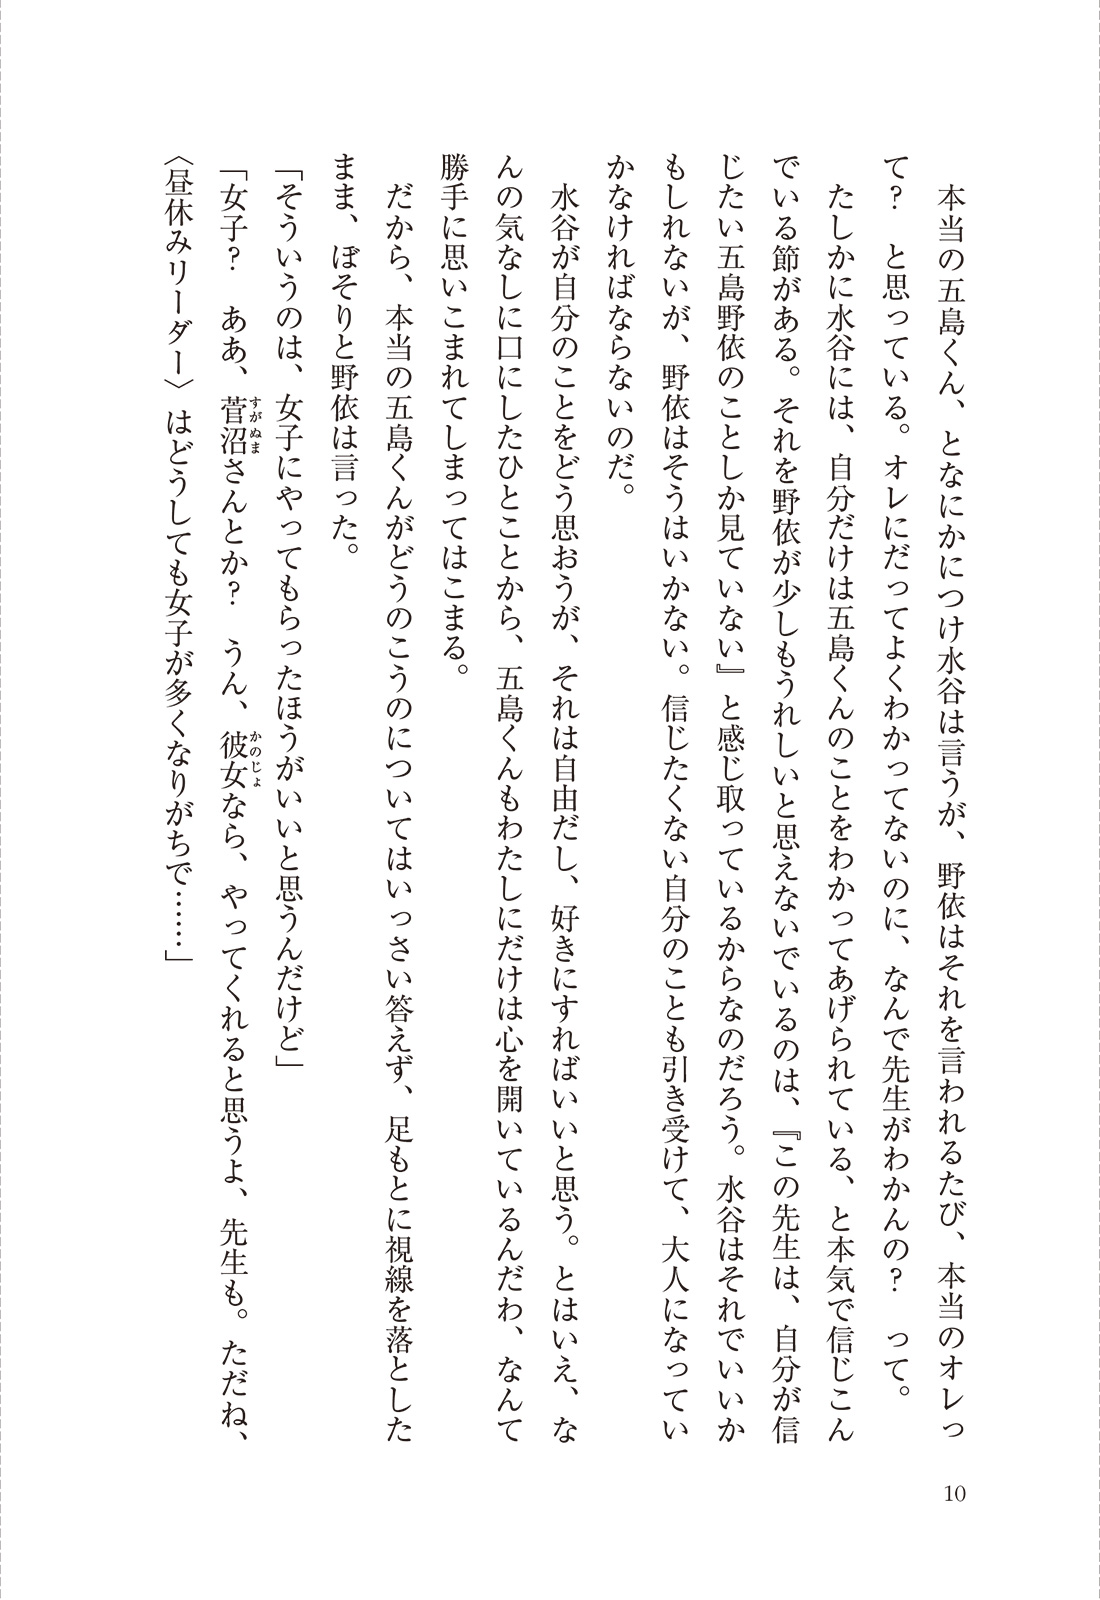 本当の五島くん、となにかにつけ水谷は言うが、野依はそれを言われるたび、本当のオレっ
て？　と思っている。オレにだってよくわかってないのに、なんで先生がわかんの？　って。
　たしかに水谷には、自分だけは五島くんのことをわかってあげられている、と本気で信じこん
でいる節がある。それを野依が少しもうれしいと思えないでいるのは、『この先生は、自分が信
じたい五島野依のことしか見ていない』と感じ取っているからなのだろう。水谷はそれでいいか
もしれないが、野依はそうはいかない。信じたくない自分のことも引き受けて、大人になってい
かなければならないのだ。
　水谷が自分のことをどう思おうが、それは自由だし、好きにすればいいと思う。とはいえ、な
んの気なしに口にしたひとことから、五島くんもわたしにだけは心を開いているんだわ、なんて
勝手に思いこまれてしまってはこまる。
　だから、本当の五島くんがどうのこうのについてはいっさい答えず、足もとに視線を落とした
まま、ぼそりと野依は言った。
「そういうのは、女子にやってもらったほうがいいと思うんだけど」
「女子？　ああ、菅沼さんとか？　うん、彼女なら、やってくれると思うよ、先生も。ただね、
〈昼休みリーダー〉はどうしても女子が多くなりがちで……」
すがぬま
かのじょ
10